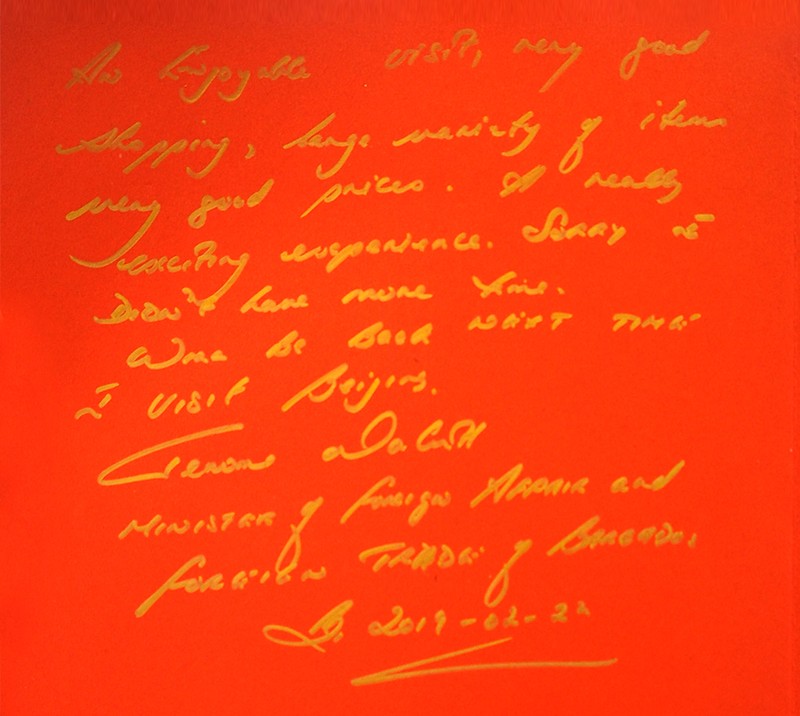 An Enjoyable visit, very good
shopping, large variety of items
very good prices. A really
exciting experience. Sorry I
Didn't have more time.
Will Be Back NEXT TIME
I VISIT Beijing.
Jerome Walcott
MINISTER of Foreign AFFAIR and
FOREIGN TRADE of BARBADOS
2019-02-22